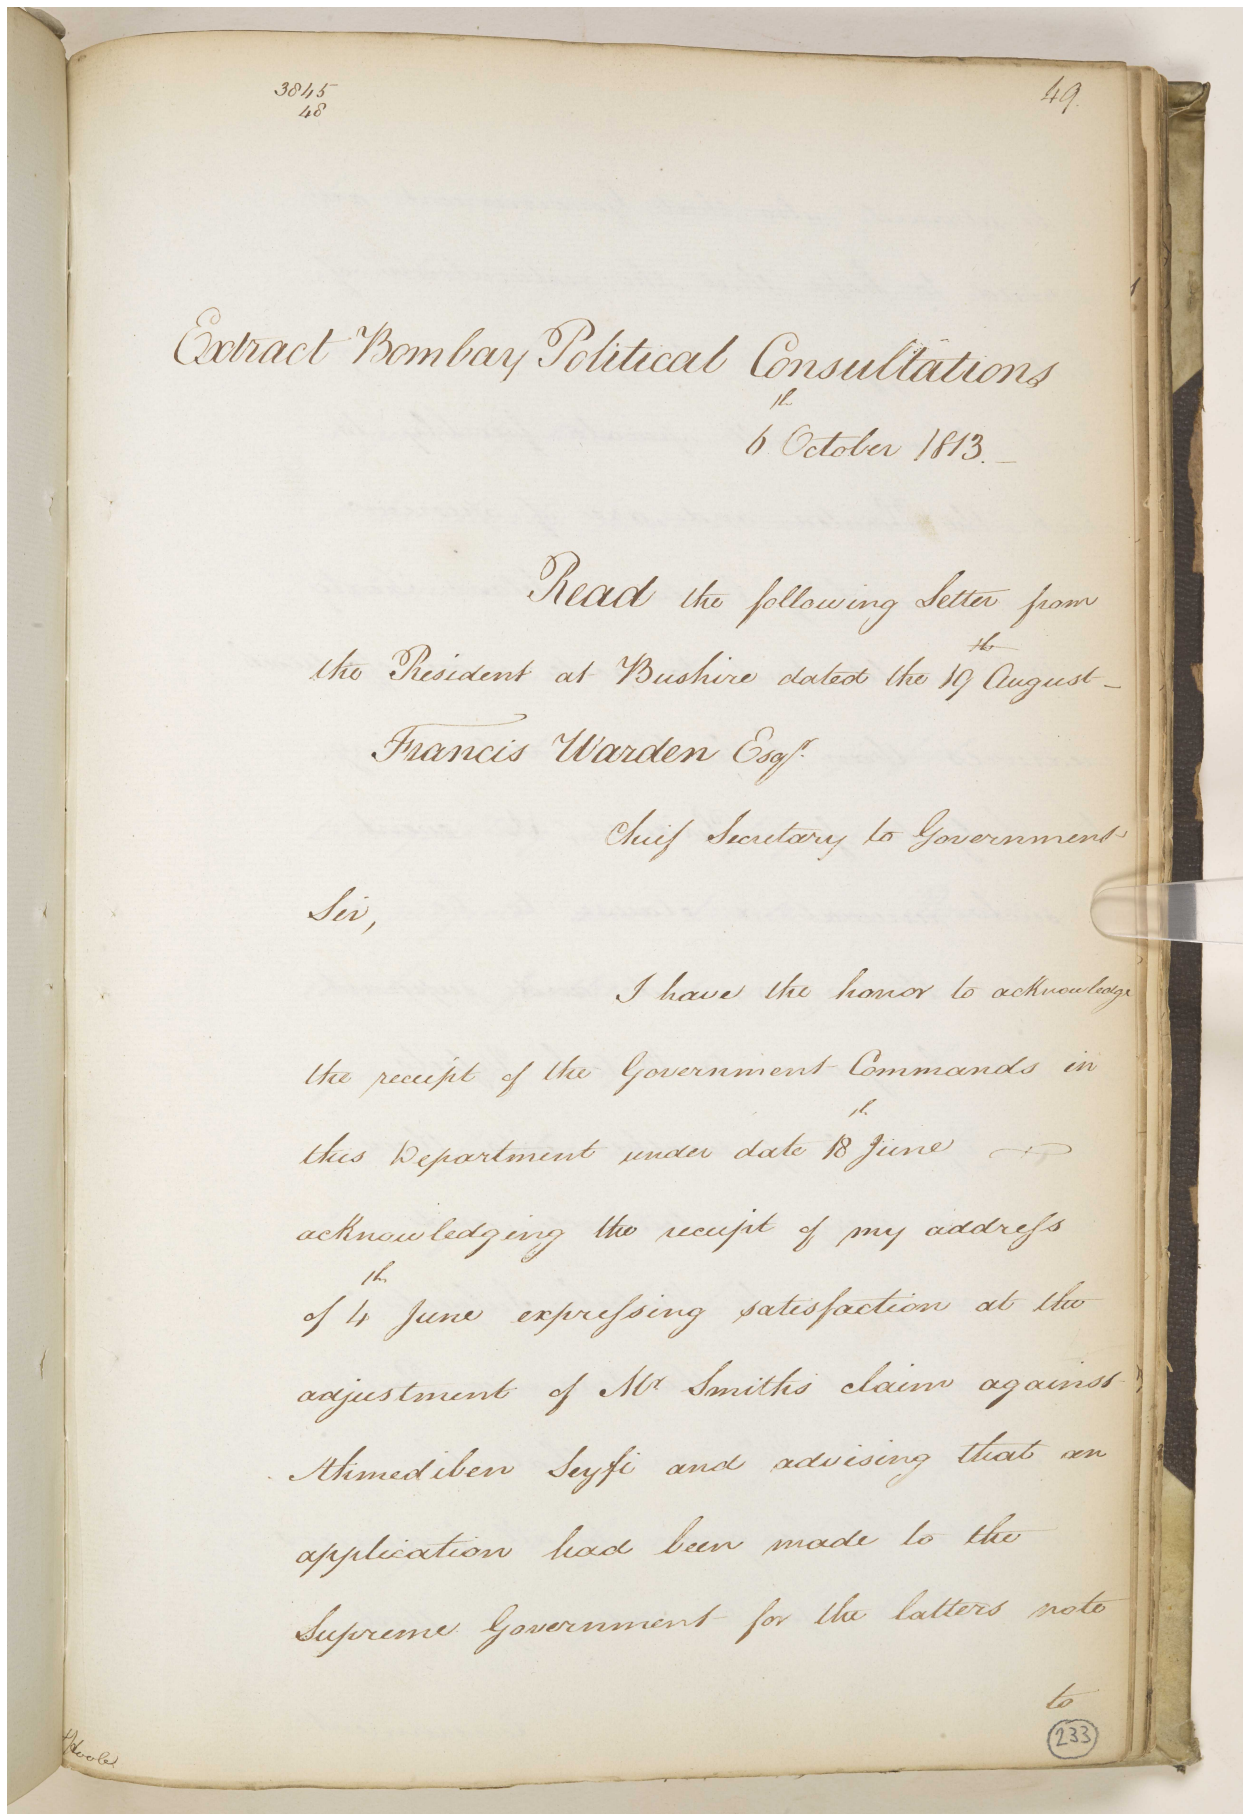 3845
48
49.
Extract Bombay Political Consultations
6th October 1813.
Read the following Letter from
the Resident at Bushire dated the 19th August
Francis Warden Esqr.
Chief Secretary to Government
Sir,
I have the honor to acknowledge
the receipt of the Government Commands in
this Department under date 18th June
acknowledging the receipt of my address
of 4th June expressing satisfaction at the
adjustment of Mr Smiths claim against
Ahmed iben Seyfi and advising that an
application had been made to the
Supreme Government for the latters note
to
233